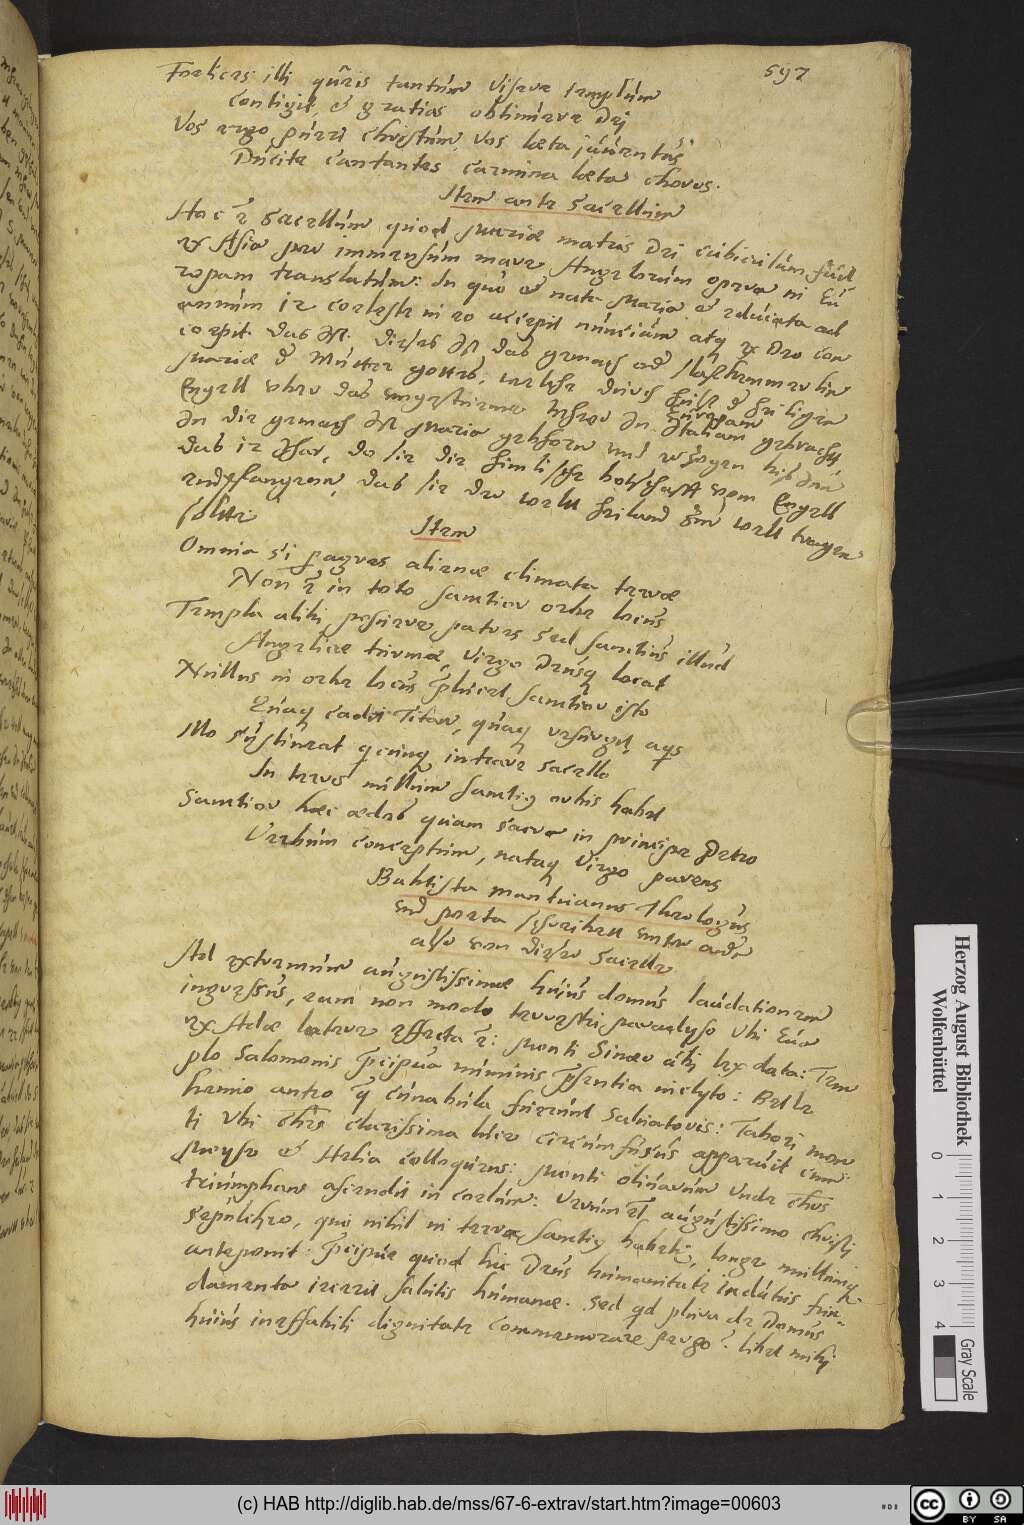 597
Foelices illi quȋris tantum visere templum
Contigit, et gratias obtinuere Dei
Vos ergo pueri Christum, vos laeta juventus
Ducite cantantes carmina laeta choros.
Item ante sacellum
Hoc ē sacellum quod Mariae matris Dei cubiculum fuit
ex Asia per immensum mare Angelorum opera in Eu
ropam translatum: In quo et nata Maria et educata ad
annum ix coeleste in eo accepit nuncium atq ex Deo con
cepit. Das ist. Dieses ist das gemach od Schlaffkammerlin
Mariae d Mutter gottes, welche durch hülff d heiligen
Engell uber das ungestueme Mehr In Italiam gebracht
Europam
In die gemach ist Maria gebhorn und erzogen biß Inn
das ix Jhar, do sie die himlische botschafft vom Engell
entpfangenn, das sie der welt heiland zur welt tragen
sollte
Item
Omnia si peragres alienae climata terrae
Non ē in toto sanctior orbe locus
Templa alibi posuere patres sed sanctius illud
Angelicae turmae, virgo Deusq locat
Nullus in orbe locus praelucet sanctior isto
Quaq cadit Titan, quaq resurgit aquis
Illo sustineat quicunq intrare sacello
In terris nullum sanctius orbis habet
Sanctior haec aedes quam sacra in principe Petro
Verbum conceptum, nataq virgo parens
Baptista Mantuanus Theologus
und poeta schreibett unter andr
also von dieser Sacelle
Ad extremum augustissimae hujus domus laudationem
ingressus, eam non modo terrestri paradyso Ubi Eva
ex Adae latere effecta ē: Monti Sinae ubi lex data: Tem
plo Salomonis praecipua numinis praesentia inclyto: Bethle
hemio antro q cunabula fuerunt Salvatoris: Tabori mon
ti Ubi Chrs clarissima luce circumfusus apparuit cum
Moyse et Helia colloquens: Monti olivarum unde Chrs
triumphans ascendit in coelum: Verum et augustissimo Christi
sepulchro, quo nihil in terra sanctius habetur, longe multumq
anteponit: praecipue quod hic Deus humanitate indutus fun-
damenta jecerit salutis humanae. Sed qd plura de Domus
huius ineffabili dignitate commemorare pergo? libet mihi
Herzog August Bibliothek
Wolfenbüttel
0 1 2 3 4
Gray Scale
(c) HAB http://diglib.hab.de/mss/67-6-extrav/start.htm?image=00603
BY SA